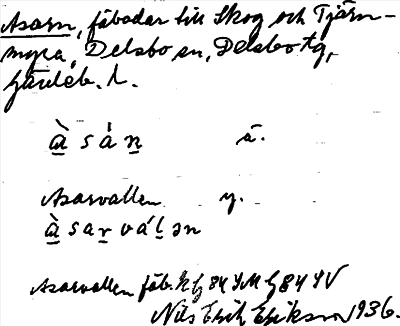 Asarn, fäbodar till Skog och Tjärn-
myra, Delsbo sn, Delsbo tg,
Gävleb. l.
à̱ s á ṉ ä.
Asarvallen y.
à̱ s a ṟ v á ḻ ə n
Asarvallen fäb. 84 84
Nils Erik Eriksson 1936.